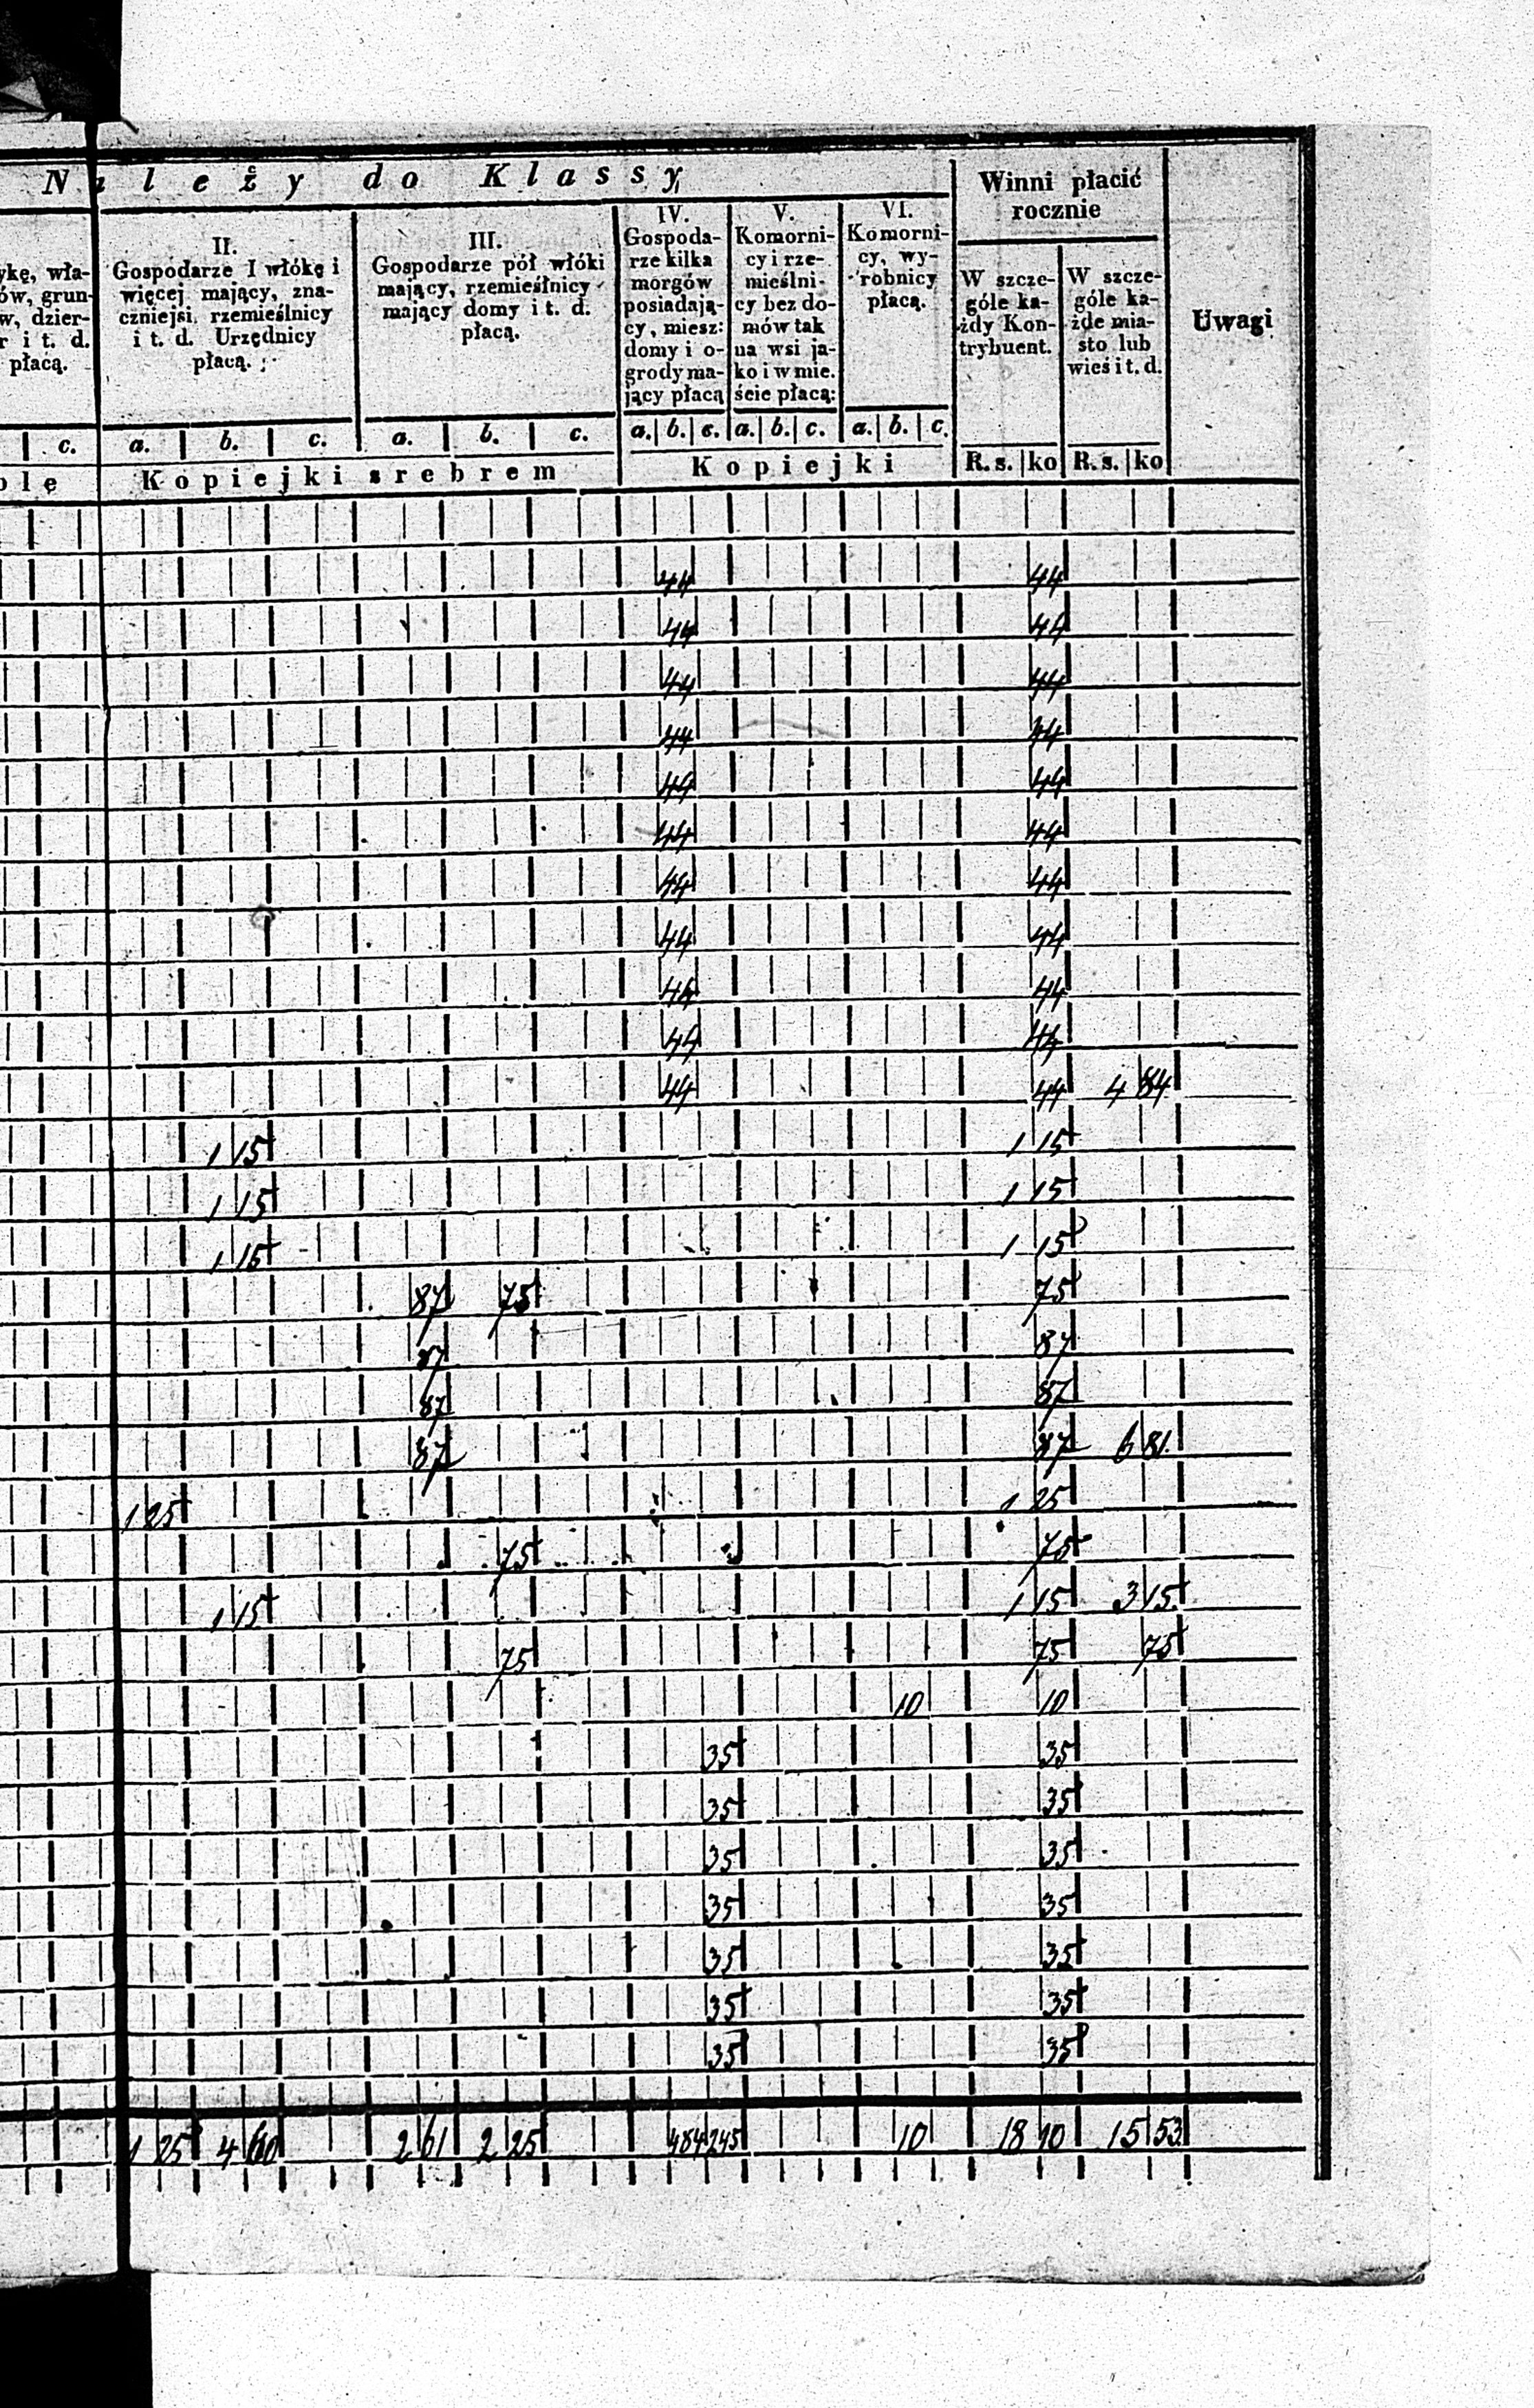 Należy do Klassy
Winni płacić
rocznie
Uwagi
ykę, wła-
ów, grun-
w, dzier-
r i t. d.
płacą.
II.
Gospodarze I włókę i
więcej mający, zna-
czniejsi, rzemieślnicy
i t. d. Urzędnicy
płacą.
III.
Gospodarze pół włóki
mający, rzemieślnicy
mający domy i t. d.
płacą.
IV.
Gospoda-
rze kilka
morgów
posiadają-
cy, miesz:
domy i o-
grody ma-
jący płacą
V.
Komorni-
cy i rze-
mieślni-
cy bez do-
mów tak
na wsi ja-
ko i w mie.
ście płacą:
VI.
Komorni-
cy, wy-
robnicy
płacą.
W szcze-
góle ka-
żdy Kon-
trybuent.
W szcze-
góle ka-
żde mia-
sto lub
wieś i t. d.
c. a. b. c. a. b. c. a. b. c. a. b. c. a. b. c.
ble Kopiejki srebrem Kopiejki R. s. ko R. s. ko
44 44
44 44
44 44
44 44
44 44
44 44
44 44
44 44
44 44
44 44
44 44 4 84
1 15 1 15
1 15 1 15
1 15 1 15
87 75 75
87 87
87 87
87 87 6 81
1 25 1 25
75 75
1 15 1 15 3 15
75 75 75
10 10
35 35
35 35
35 35
35 35
35 35
35 35
35 35
1 25 4 60 2 61 2 25 484 245 10 18 10 15 53